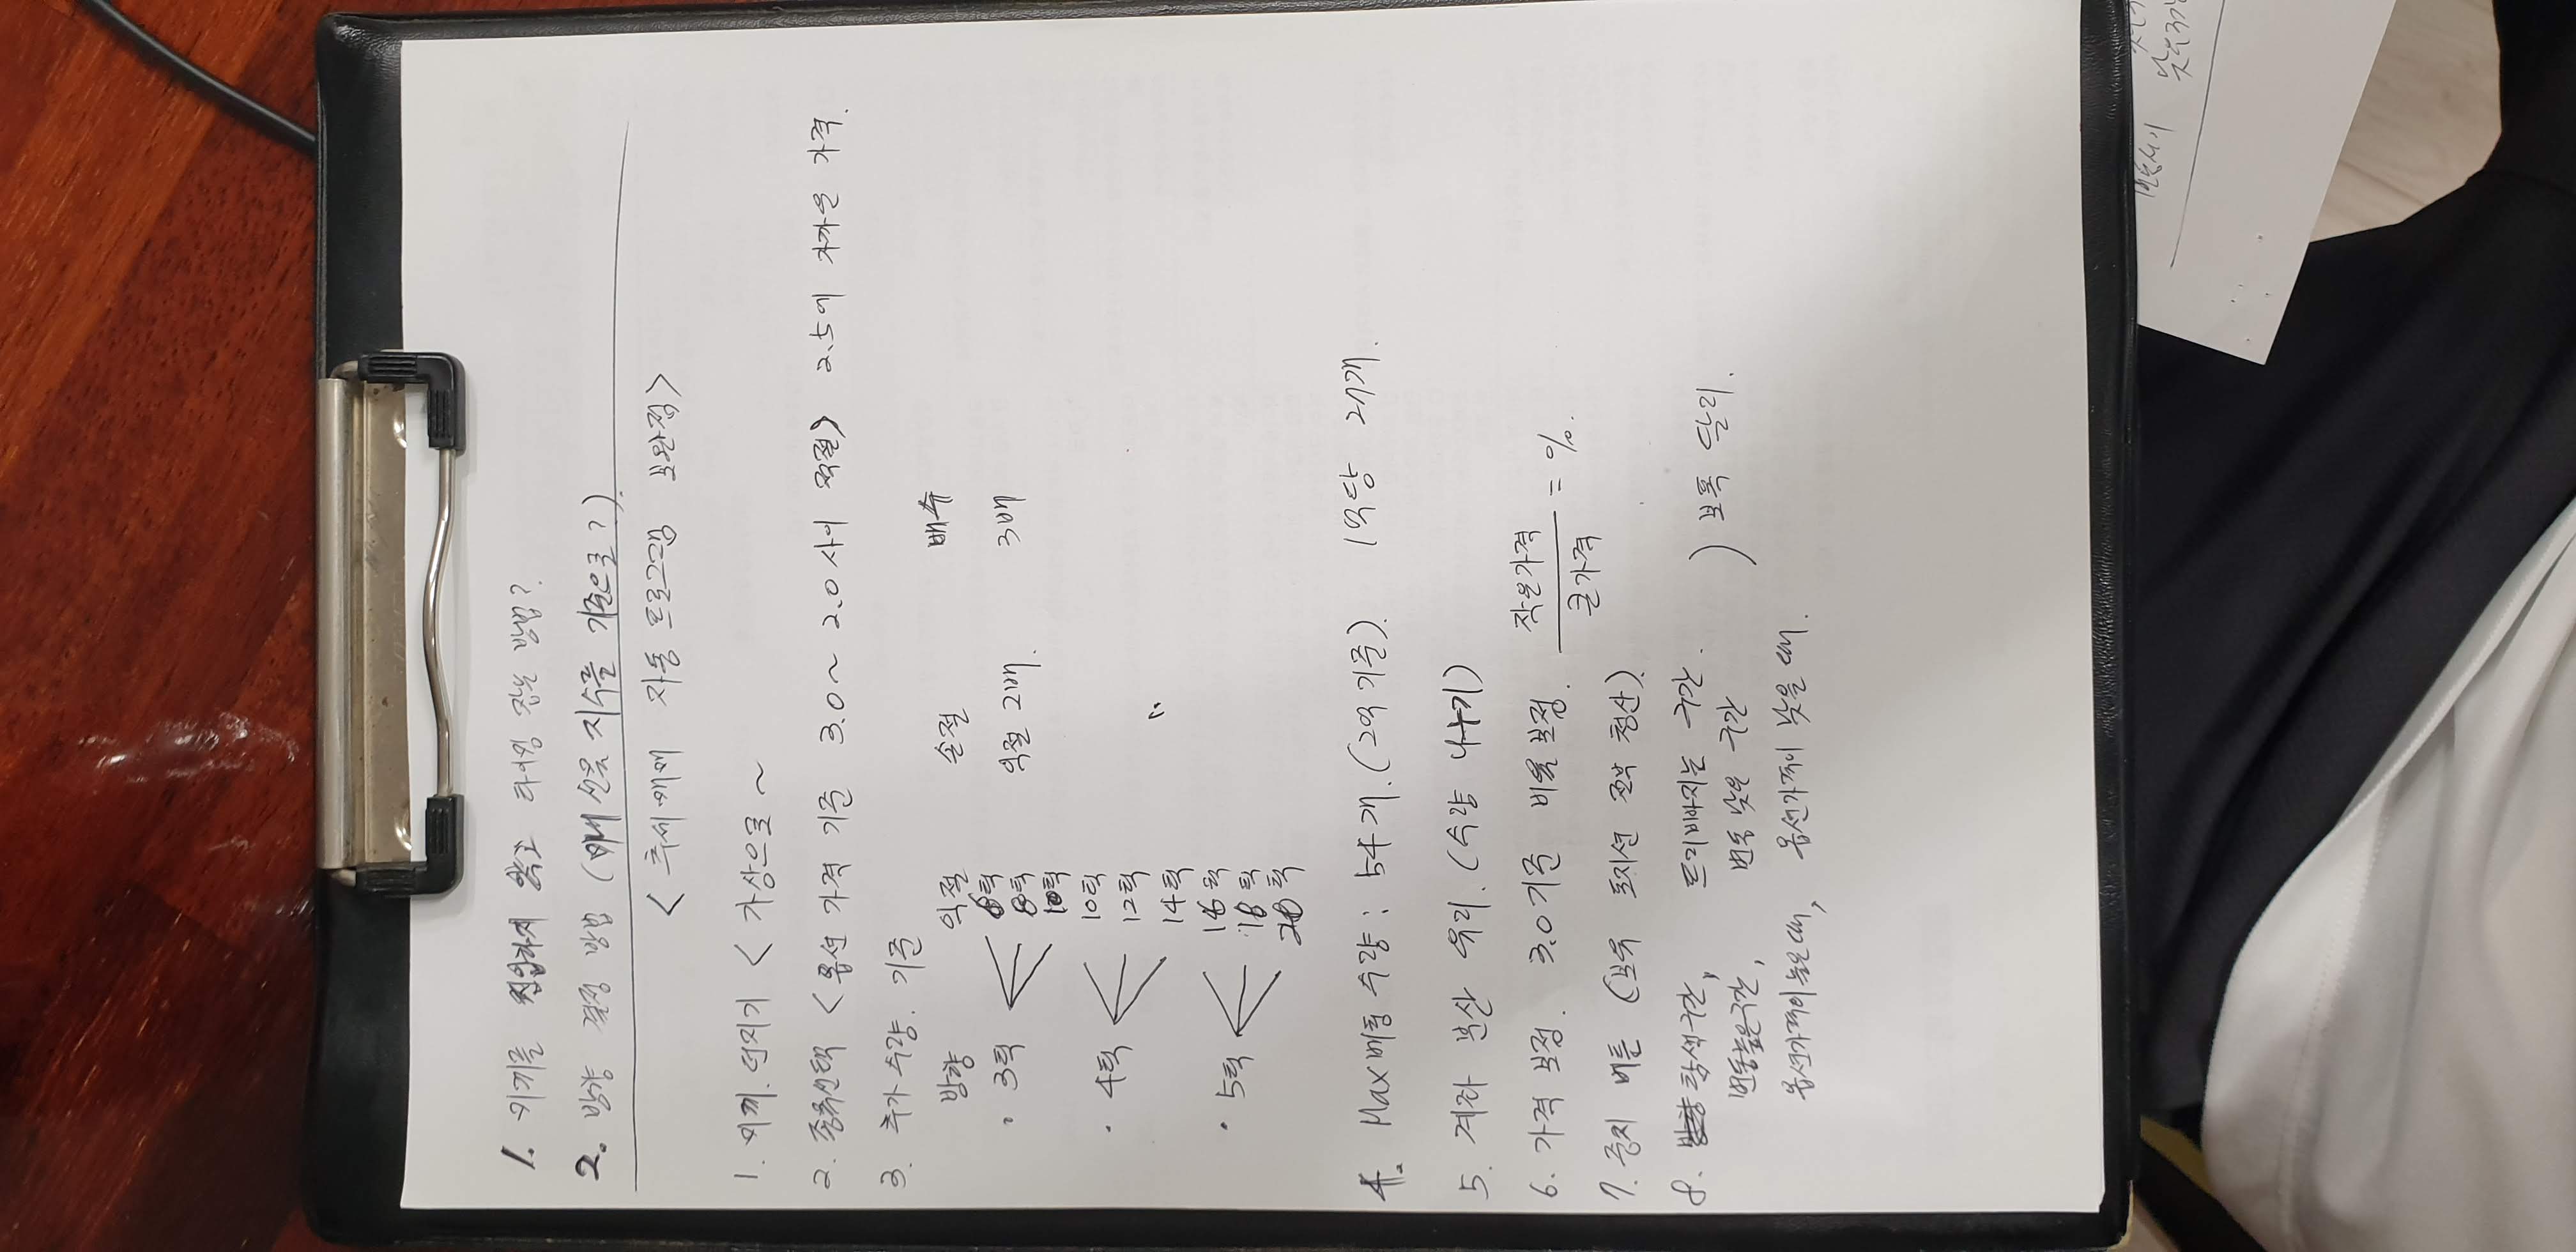 1. 미끼를 진입하지 않고 타이밍 잡는 방법?
2. 방향 결정 방법 (미니 선물 지수를 기준으로?)
< 추세매매 자동 프로그램 보완점 >
1. 미끼 던지기 < 가상으로 ~
2. 종목선택 < 옵션 가격 기준 3.0 ~ 2.0 사이 적절 > 2.5에 가까운 가격.
3. 추가 수량. 기준
방향 익절 손절 배수
· 3틱 6틱 8틱 10틱 익절 2배. 3배
· 4틱 10틱 12틱 14틱 〃
· 5틱 16틱 18틱 20틱
4. Max 베팅 수량 : 54개. (2억 기준). 1억당 27개.
5. 계좌 분산 유리. (수량 나누기)
6. 가격 보정. 3.0 기준 비율 보정. 작은가격 / 큰가격 = %.
7. 중지 버튼 (보유 포지션 전부 청산).
8. 탐색구간, 뜨리빠지는 구간.
변동높은구간, 변동 낮은 구간 ) 보폭 달리.
옵션가격이 높은때, 옵션가격이 낮을 때.